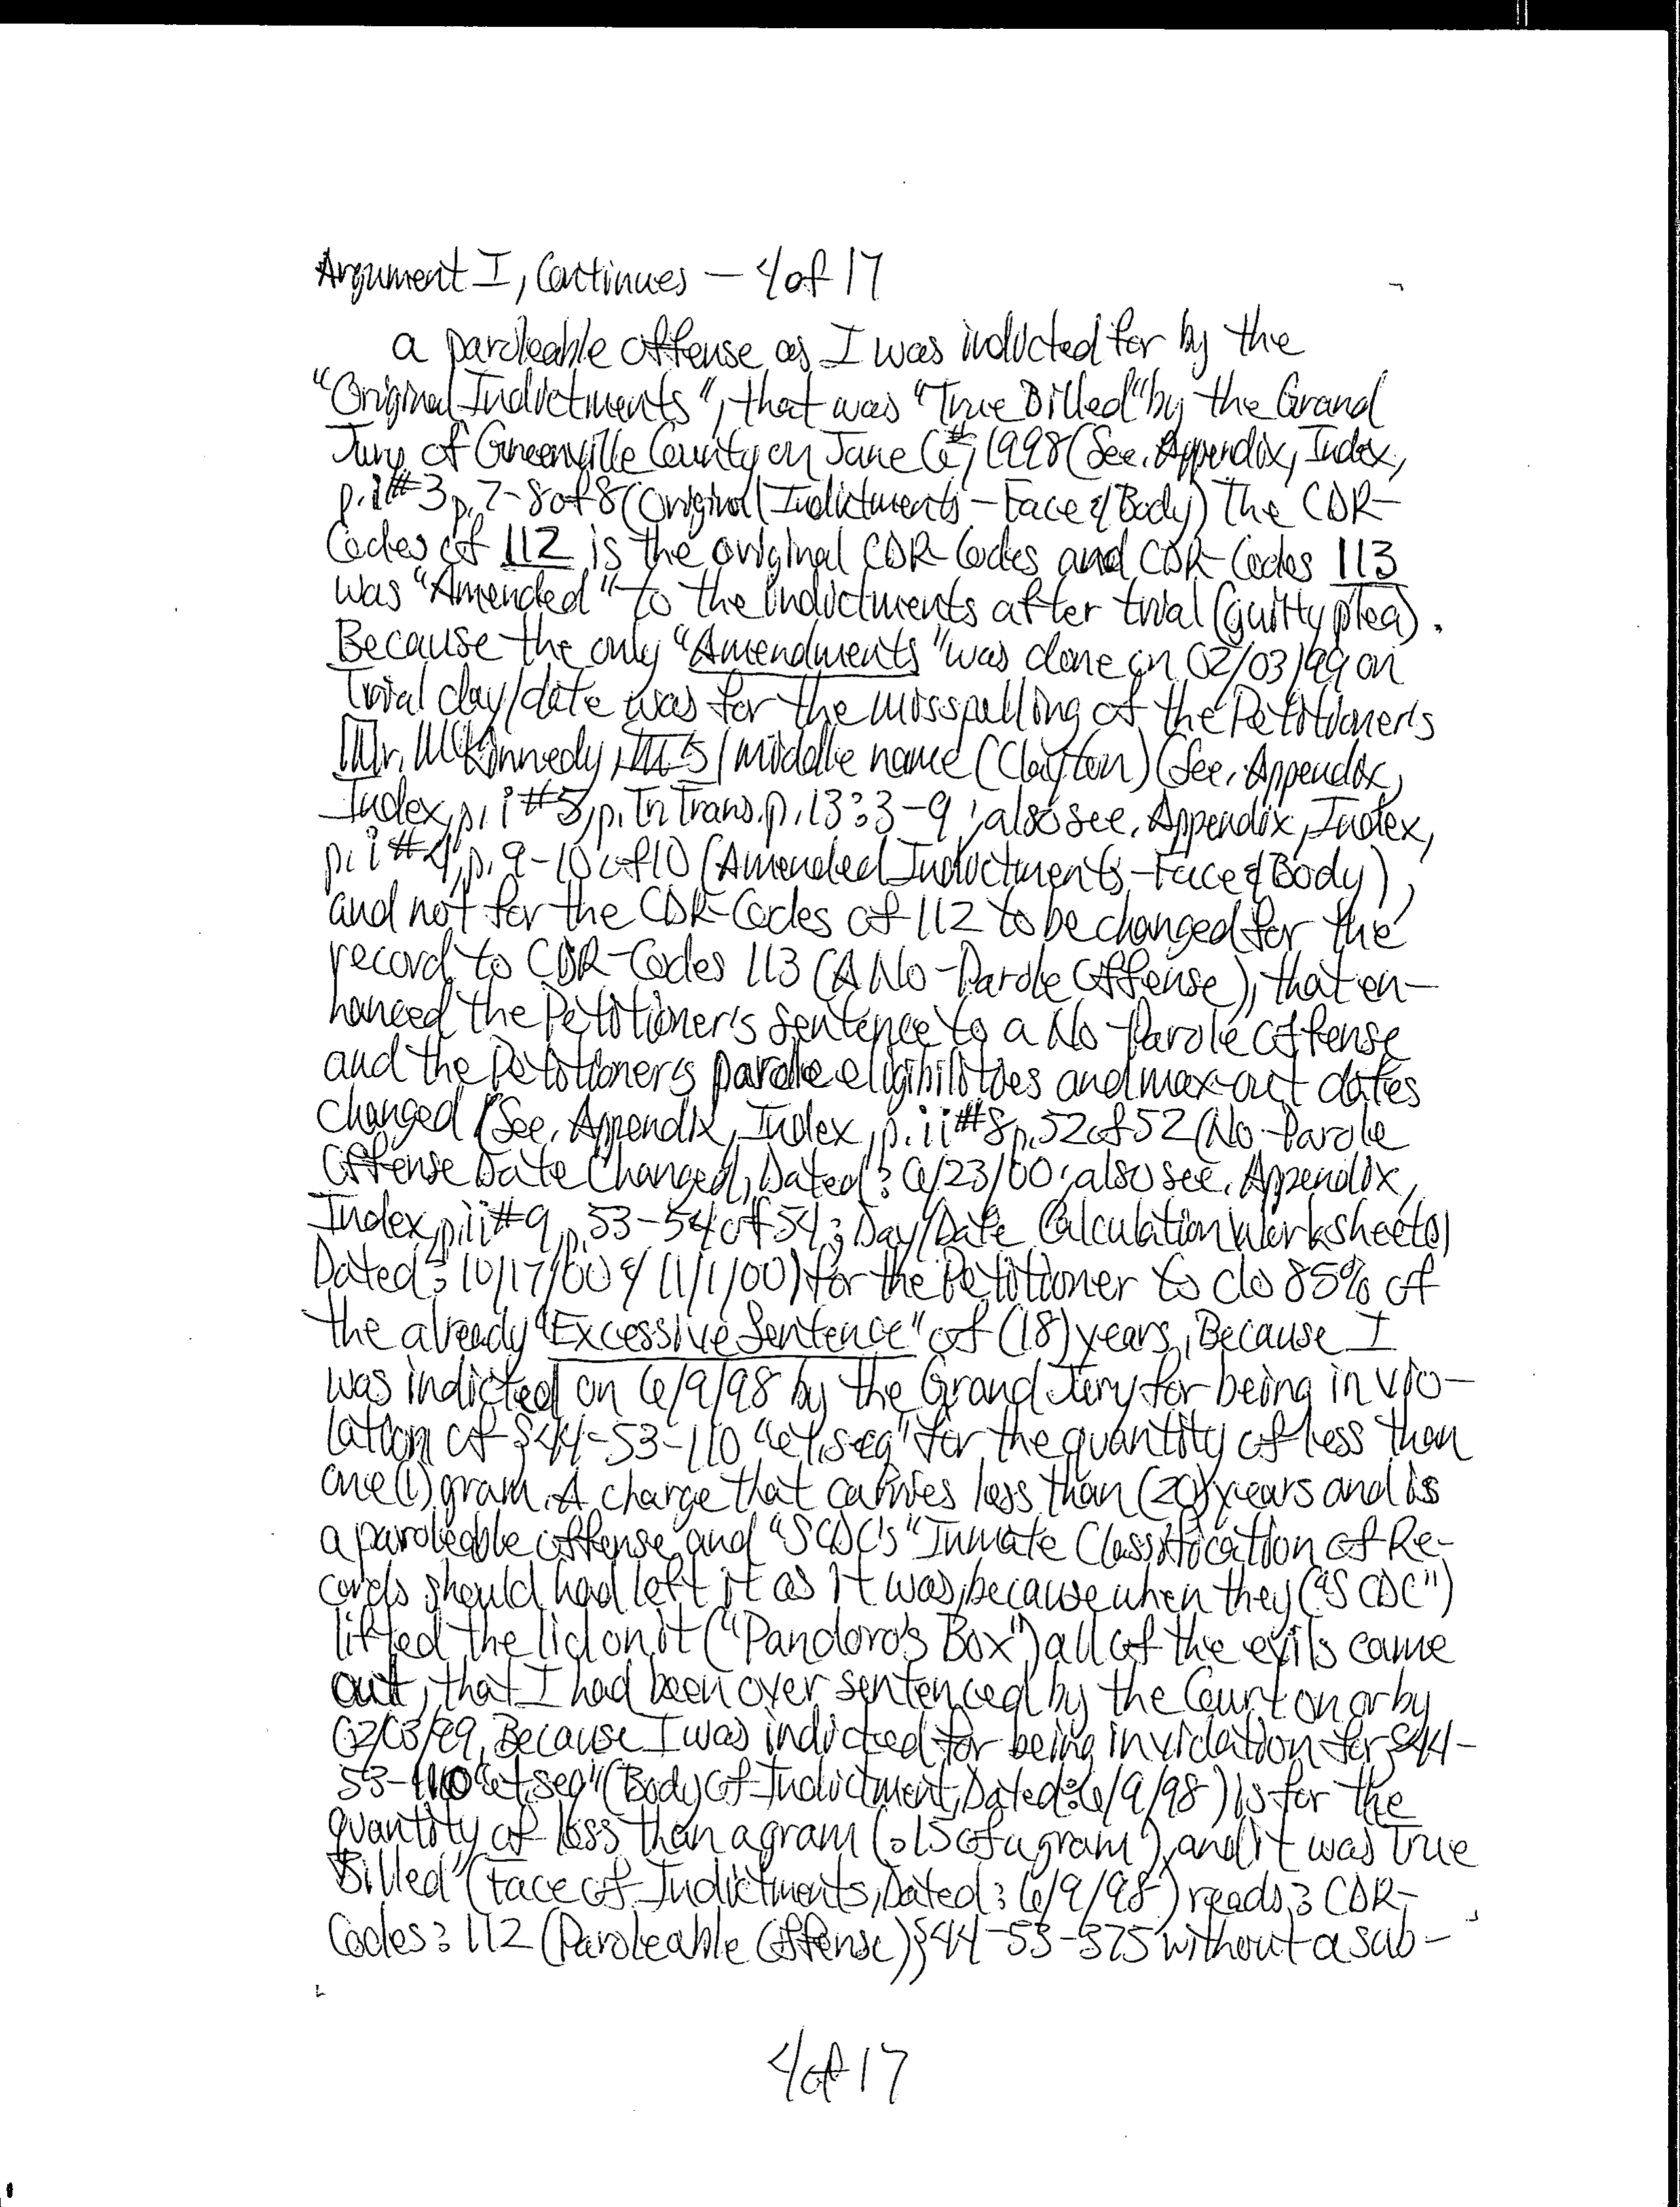 Argument I, Continues — 4 of 17
a paroleable offense as I was indicted for by the
"Original Indictments", that was "True Billed" by the Grand
Jury of Greenville County on June 1998 (See, Appendix, Index,
p. i #3 p. 7-8 of 8 (Original Indictments - Face & Body) The CDR-
Codes of 112 is the original CDR-Codes and CDR-Codes 113
was "Amended" to the indictments after trial (guilty plea).
Because the only "Amendments" was done on 02/03/99 on
Trial day/date was for the misspelling of the Petitioner's
Mr. McKennedy, III's / middle name (Clayton) (See, Appendix,
Index, p. i #5, p. Tr. Trans. p. 13:3-9; also see, Appendix, Index,
p. i #4, p. 9-10 of 10 (Amended Indictments - Face & Body),
and not for the CDR-Codes of 112 to be changed for the
record to CDR-Codes 113 (A No-Parole Offense), that en-
hanced the Petitioner's sentence to a No-Parole offense
and the Petitioner's parole eligibilities and max-out dates
changed (See, Appendix, Index, p. ii #8 p. 52 of 52 (No-Parole
Offense Date Changed, Dated: 6/23/00; also see, Appendix,
Index, p. ii #9 p. 53-54 of 54; Day/Date Calculation Worksheets,
Dated: 10/17/00 & 11/1/00) for the Petitioner to do 85% of
the already "Excessive Sentence" of (18) years, Because I
was indicted on 6/9/98 by the Grand Jury for being in vio-
lation of §44-53-110 "et, seq" for the quantity of less than
one (1) gram. A charge that carries less than (20) years and is
a paroleable offense and "SCDC's" Inmate Classification of Re-
cords should had left it as it was, because when they ("SCDC")
lifted the lid on it ("Pandora's Box") all of the evils came
out, that I had been over sentenced by the Court on or by
02/03/99, Because I was indicted for being in violation for §44-
53-110 "et, seq" (Body of Indictment, Dated: 6/9/98) is for the
quantity of less than a gram (.15 of a gram) and it was True
Billed" (Face of Indictments, Dated: 6/9/98) reads: CDR-
Codes: 112 (Paroleable Offense) §44-53-375 without a sub-
4 of 17